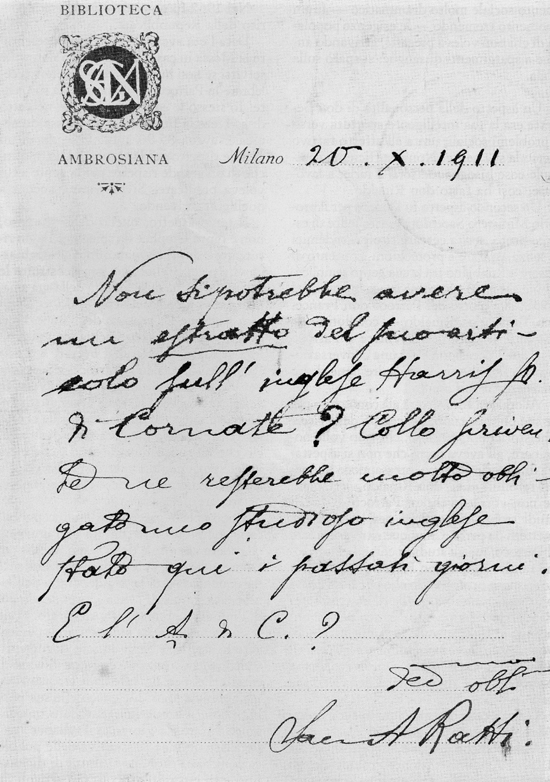 BIBLIOTECA
AMBROSIANA
Milano 20 . X . 1911
Non si potrebbe avere
un estratto del suo arti-
colo sull' inglese Harris
di Cornate ? Collo scriven
te ne resterebbe molto obbli-
gato uno studioso inglese
stato qui i passati giorni.
E l' A di C. ?
obb
Sac A Ratti.